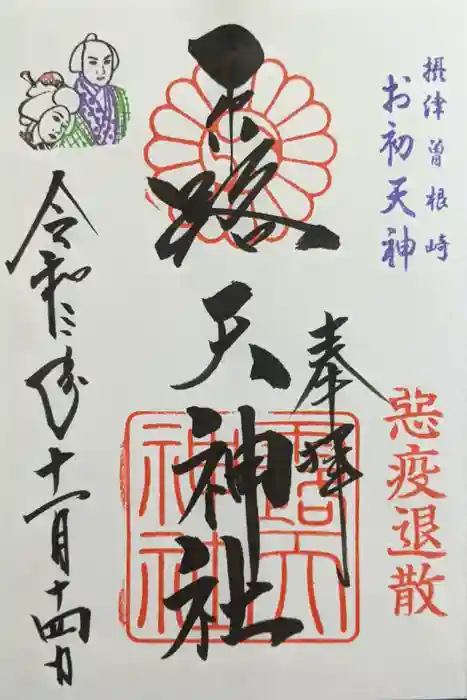 摂津 曽根崎
お初天神
奉拝
悪疫退散
露
天神社
露天神社
令和二年十一月十四日